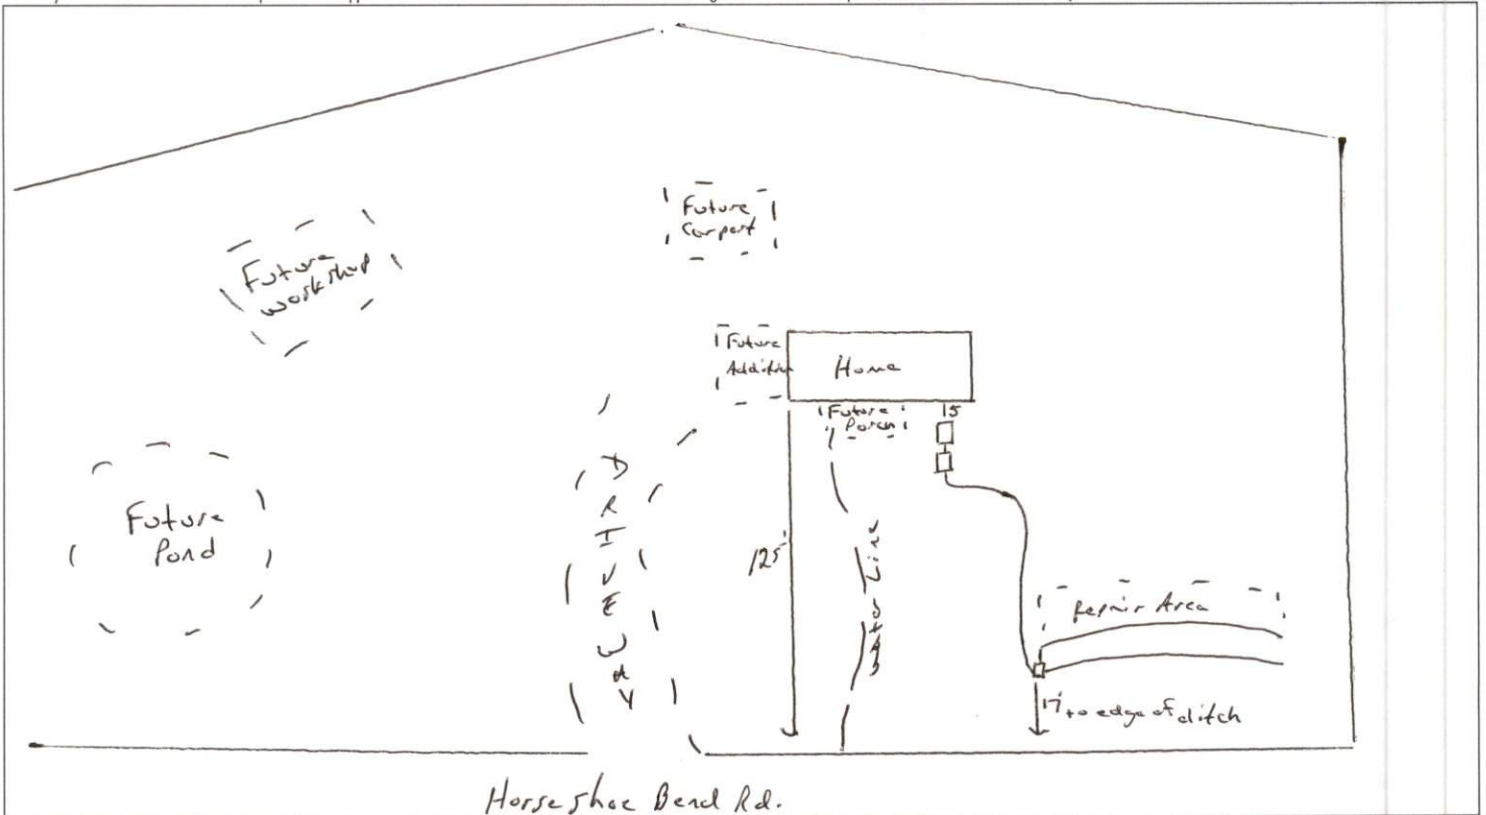 Future
Carport
Future
workshop
Future
Addition
Home
Future
Porch
15
Future
Pond
DRIVEWAY
125'
Water Line
Repair Area
17' to edge of ditch
Horseshoe Bend Rd.